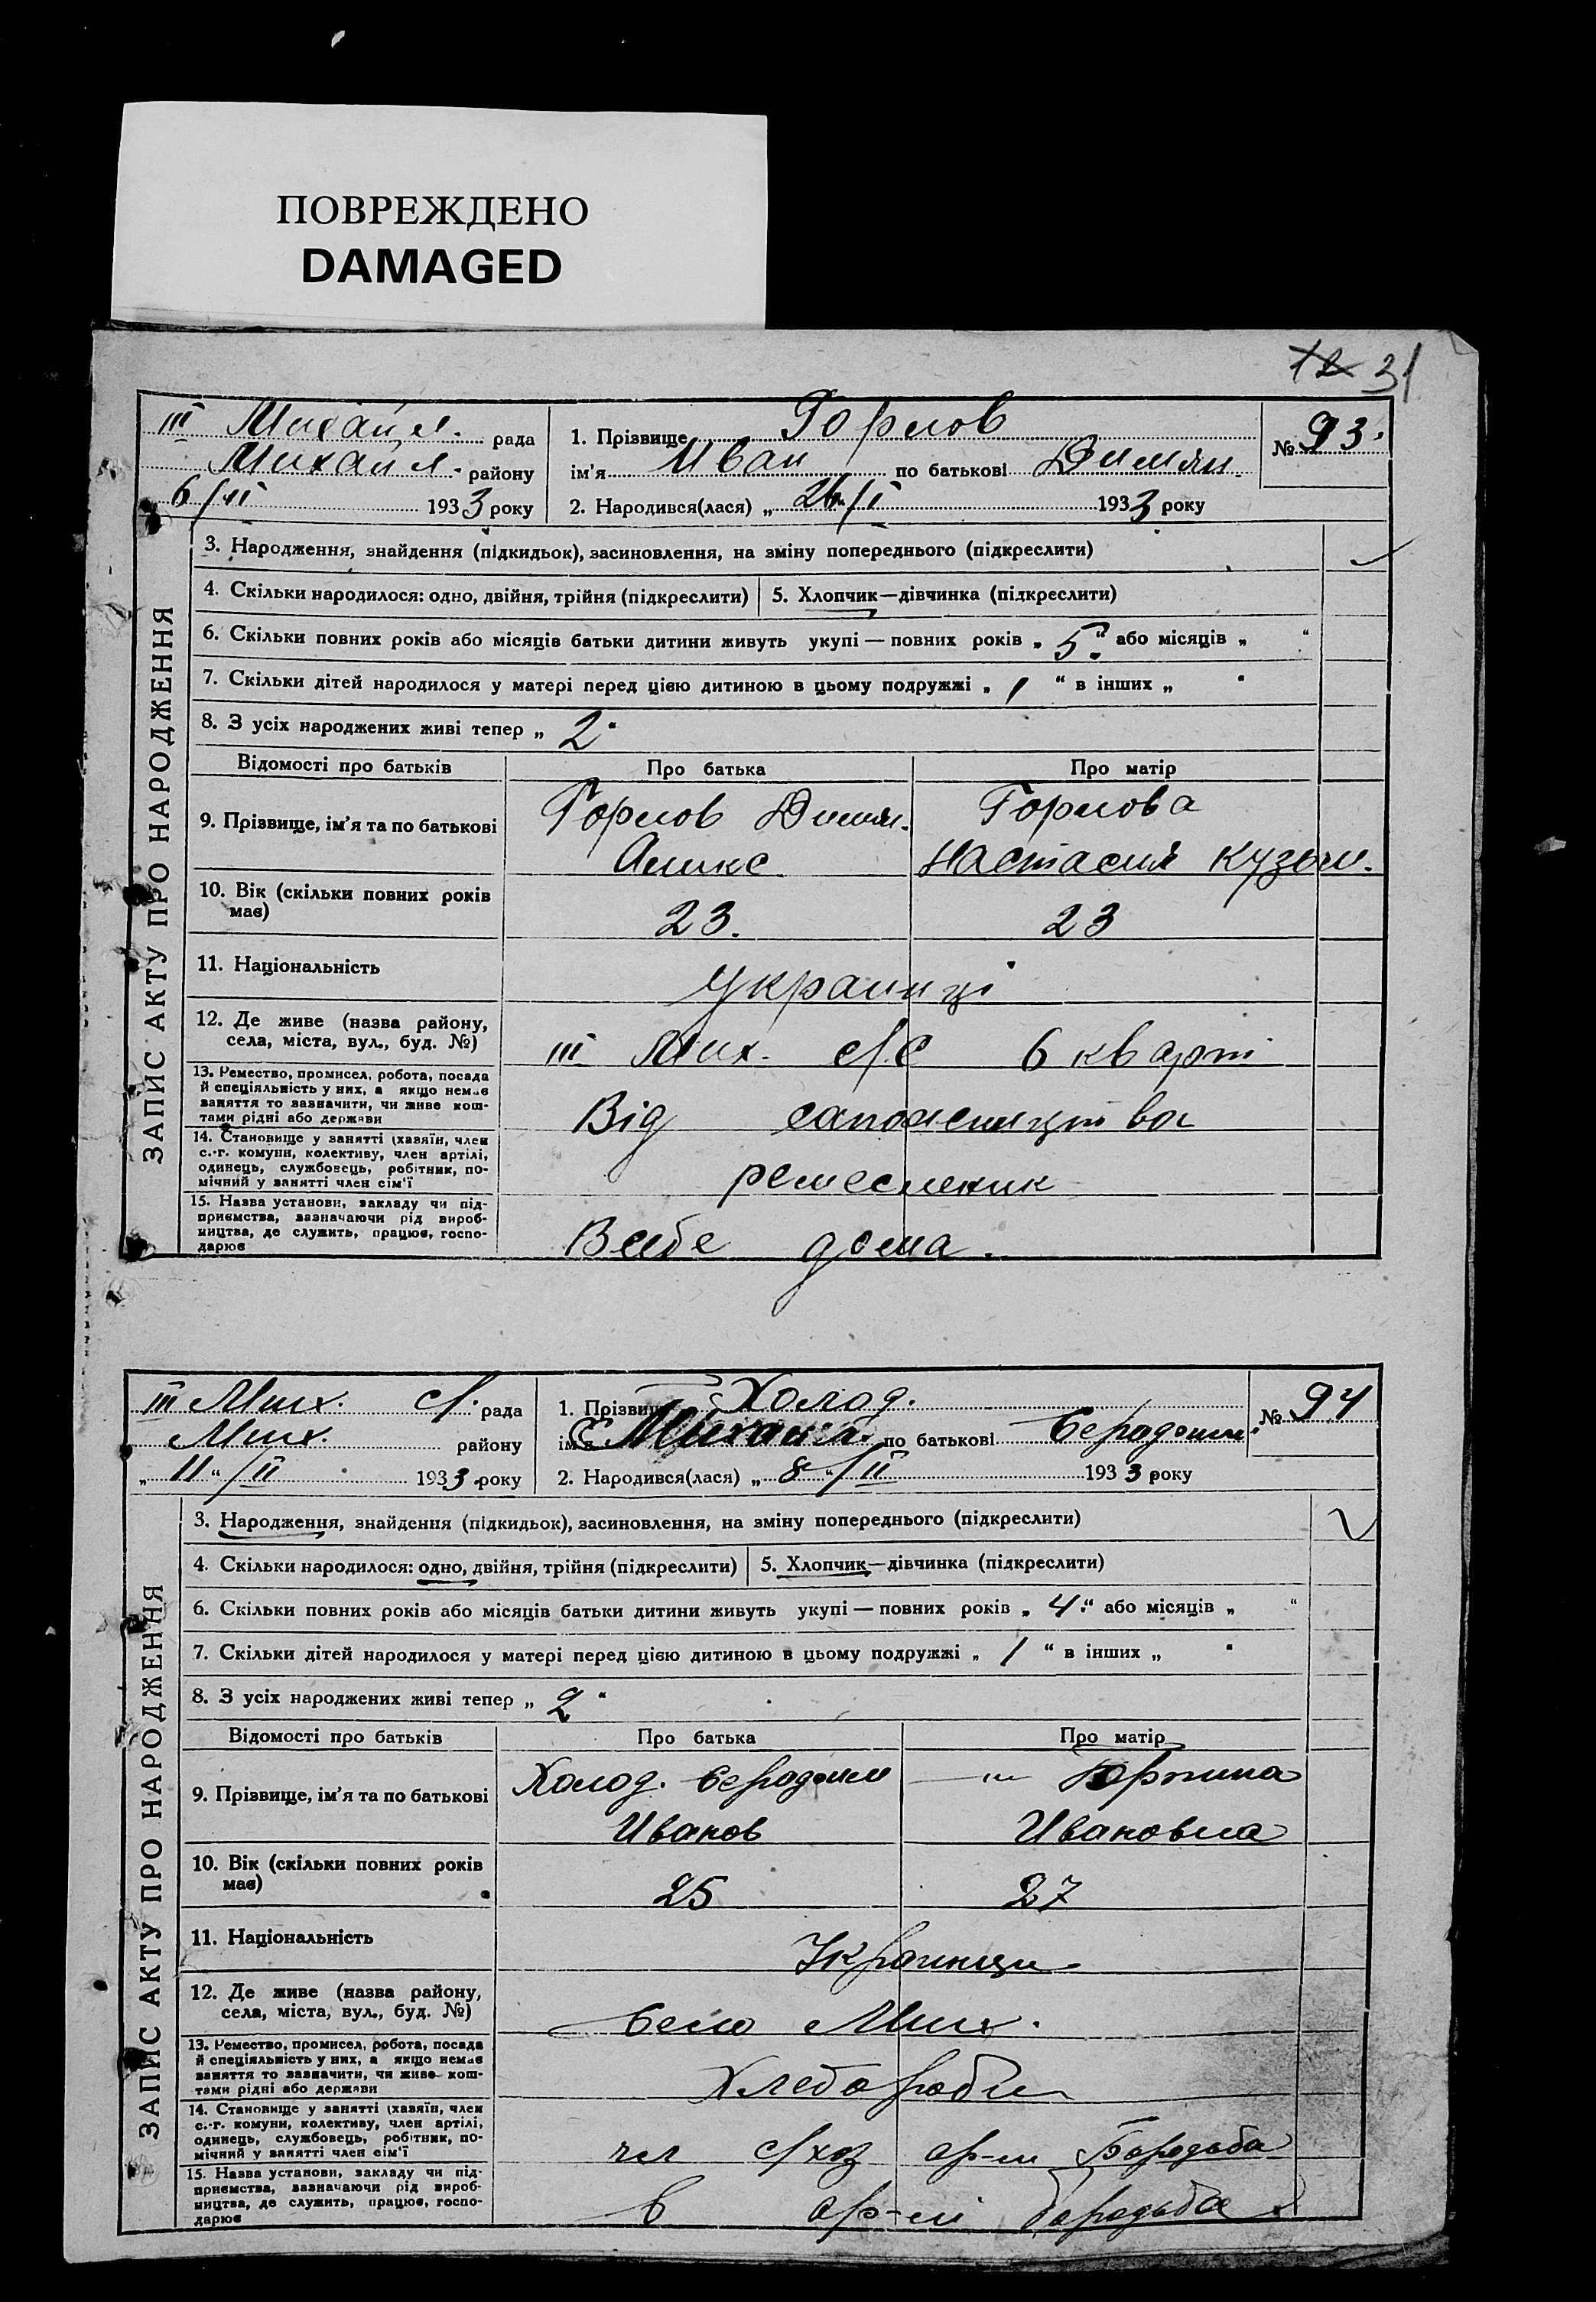 ПОВРЕЖДЕНО
DAMAGED
12 31
III Михайл. рада
Михайл. району
6/II 1933 року
1. Прізвище Горлов
ім'я Иван по батькові Димян
2. Народився(лася) „ 26/I 1933 року
№ 93.
ЗАПИС АКТУ ПРО НАРОДЖЕННЯ
3. Народження, знайдення (підкидьок), засиновлення, на зміну попереднього (підкреслити)
4. Скільки народилося: одно, двійня, трійня (підкреслити) 5. Хлопчик—дівчинка (підкреслити)
6. Скільки повних років або місяців батьки дитини живуть укупі — повних років „ 5 “ або місяців „ “
7. Скільки дітей народилося у матері перед цією дитиною в цьому подружжі „ 1 “ в інших „ “
8. З усіх народжених живі тепер „ 2 “
Відомості про батьків Про батька Про матір
9. Прізвище, ім'я та по батькові
Горлов Димян.
Горлова
Настасия Кузьм.
10. Вік (скільки повних років має)
23. 23
11. Національність
Украинці
12. Де живе (назва району,
села, міста, вул., буд. №)
III Мих. с/с 6 кварт
13. Ремество, промисел, робота, посада
й спеціяльність у них, а якщо немає
заняття то зазначити, чи живе кош-
тами рідні або держави
Від сапожництва
14. Становище у занятті (хазяїн, член
с.-г. комуни, колективу, член артілі,
одинець, службовець, робітник, по-
мічний у занятті член сім'ї
ремесленик
15. Назва установи, закладу чи під-
приємства, зазначаючи рід вироб-
ництва, де служить, працює, госпо-
дарює
Всебе дома.
III Мих. с/. рада
Мих. району
„ 11 “/II 1933 року
1. Прізвище Холод.
ім'я Михаил. по батькові
2. Народився(лася) „ 8 “/II 1933 року
№ 94
ЗАПИС АКТУ ПРО НАРОДЖЕННЯ
3. Народження, знайдення (підкидьок), засиновлення, на зміну попереднього (підкреслити)
4. Скільки народилося: одно, двійня, трійня (підкреслити) 5. Хлопчик—дівчинка (підкреслити)
6. Скільки повних років або місяців батьки дитини живуть укупі — повних років „ 4 “ або місяців „ “
7. Скільки дітей народилося у матері перед цією дитиною в цьому подружжі „ 1 “ в інших „ “
8. З усіх народжених живі тепер „ 2 “
Відомості про батьків Про батька Про матір
9. Прізвище, ім'я та по батькові
Холод.
Иванов
Ивановна
10. Вік (скільки повних років має)
25 27
11. Національність
Украинци
12. Де живе (назва району,
села, міста, вул., буд. №)
Село Мих.
13. Ремество, промисел, робота, посада
й спеціяльність у них, а якщо немає
заняття то зазначити, чи живе кош-
тами рідні або держави
Хлебороби
14. Становище у занятті (хазяїн, член
с.-г. комуни, колективу, член артілі,
одинець, службовець, робітник, по-
мічний у занятті член сім'ї
чл с/хоз ар-ли Бородьба
15. Назва установи, закладу чи під-
приємства, зазначаючи рід вироб-
ництва, де служить, працює, госпо-
дарює
в ар-лі Бородьба